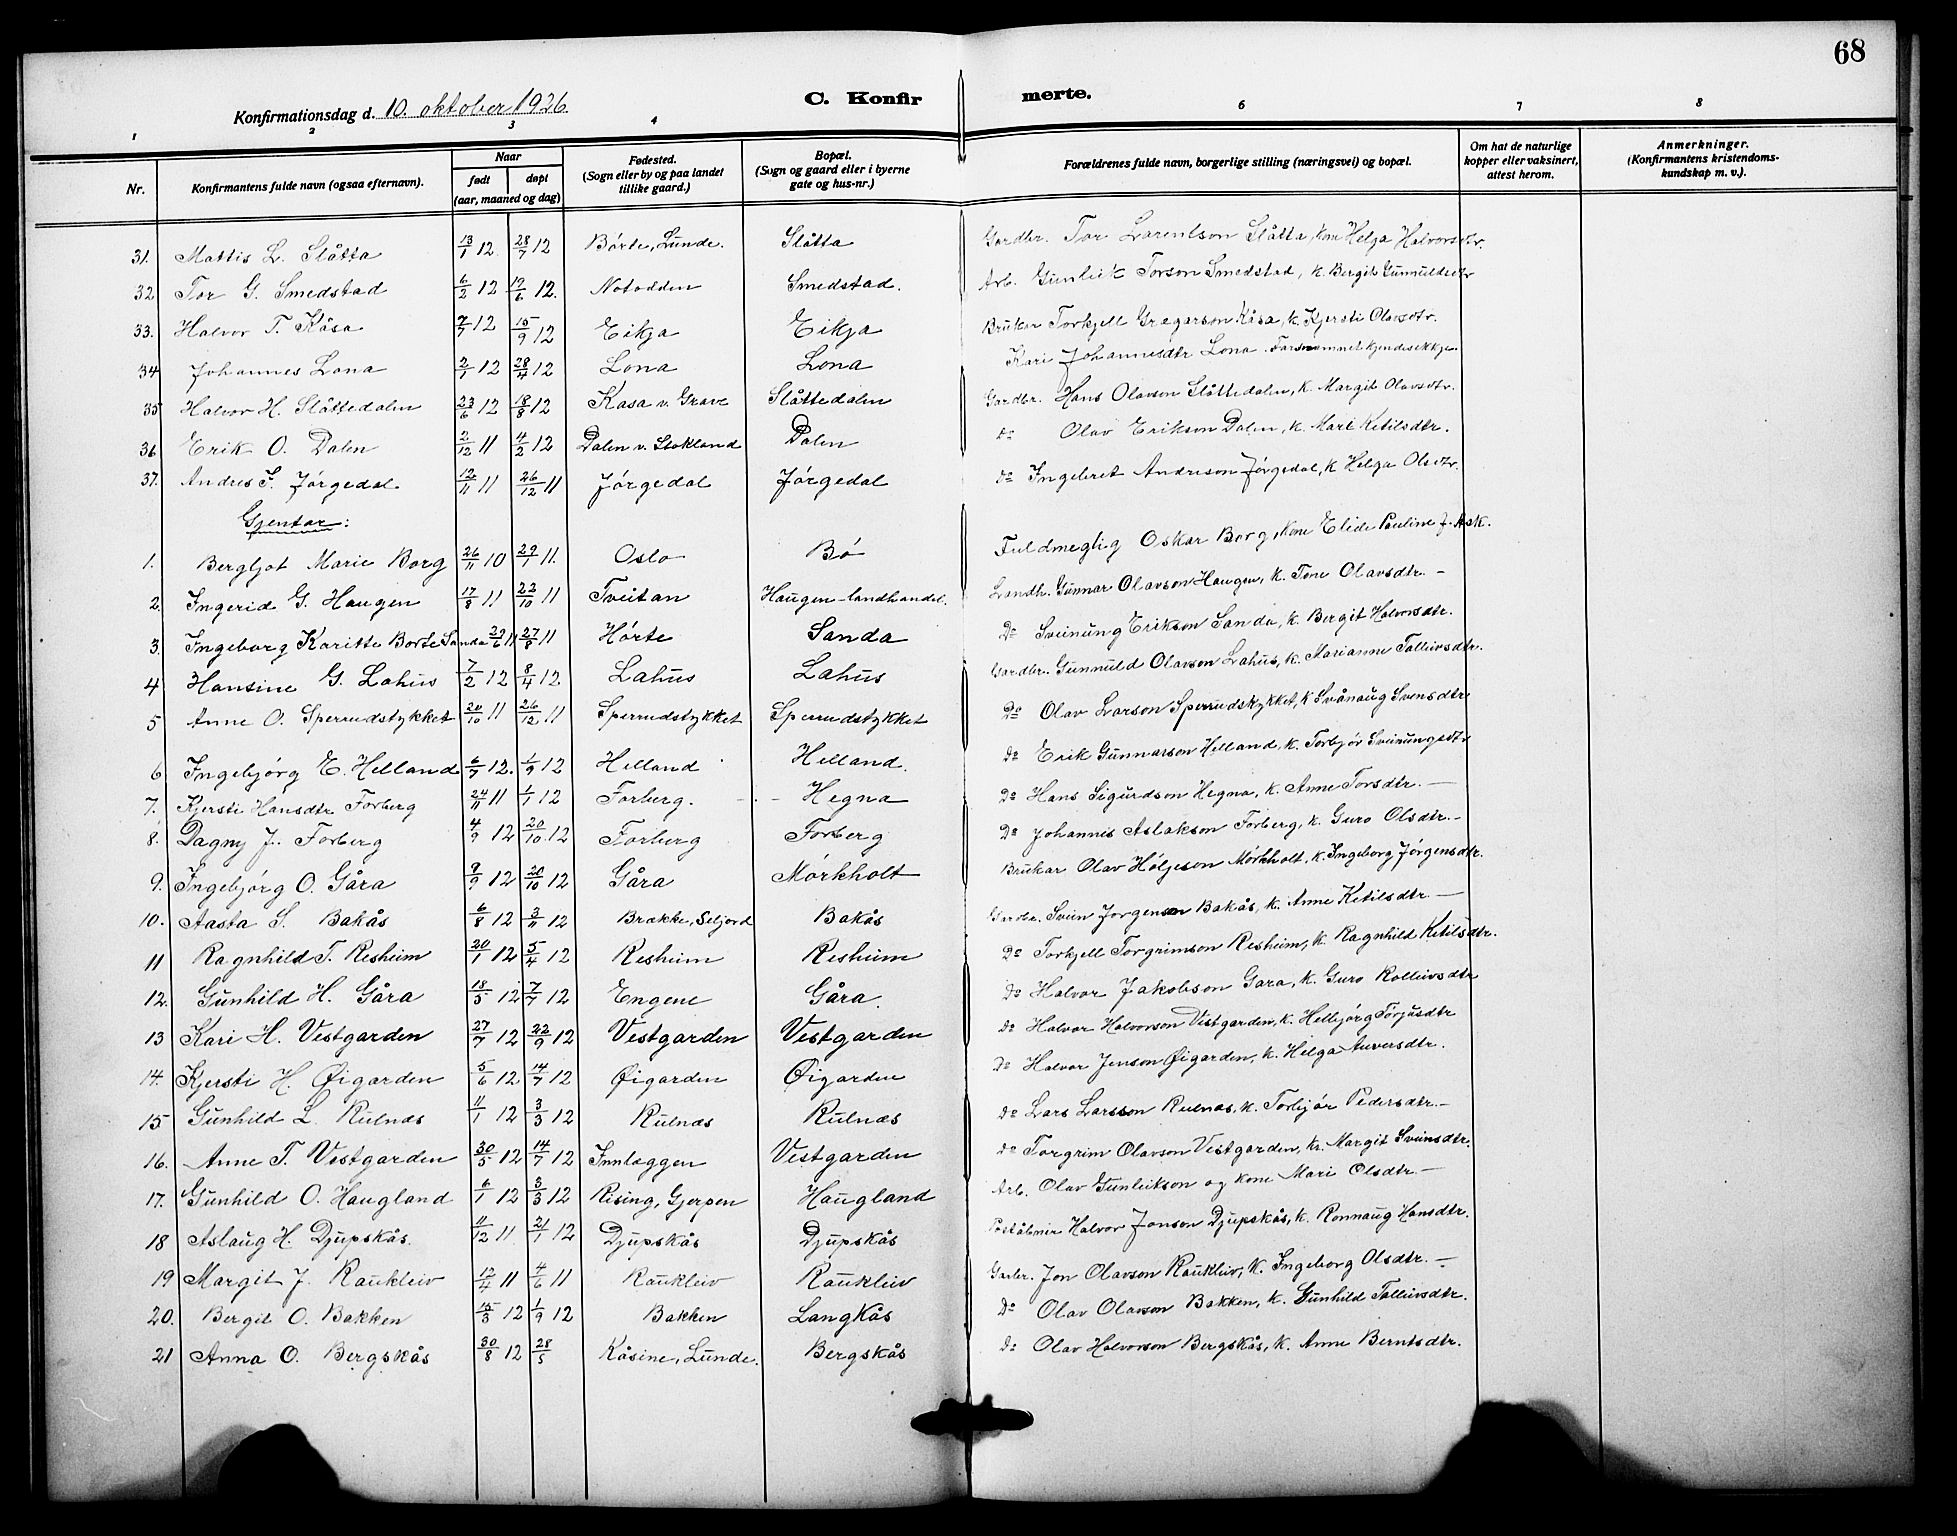 68
Konfirmationsdag d. 10. oktober 1926.
C. Konfir merte.
1 2 3 4 6 7 8
Nr. Konfirmantens fulde navn (ogsaa efternavn). Naar født døpt (aar, maaned og dag) Fødested. (Sogn eller by og paa landet tillike gaard.) Bopæl. (Sogn og gaard eller i byerne gate og hus-nr.) Forældrenes fulde navn, borgerlige stilling (næringsvei) og bopæl. Om hat de naturlige kopper eller vaksinert, attest herom. Anmerkninger. (Konfirmantens kristendoms-kundskap m. v.).
31. Mattis L. Slåtta 13/1 12 28/7 12 Børte, Lunde. Slåtta Gardbr. Tor Larentson Slåtta, kone Helga Halvorsdtr.
32 Tor G. Smedstad 6/2 12 19/6 12. Notodden Smedstad. Arb. Gunleik Torson Smedstad, k. Bergit Gunnuldsdtr
33. Halvor T. Kåsa 7/7 12 15/9 12 Eikja Eikja Brukar Torkjell Gregarson Kåsa, k. Kjersti Olavsdtr.
34 Johannes Lona 2/1 12 28/4 12 Lona Lona Kari Johannesdtr Lona. Farsnamnet kjendes ikkje.
35 Halvor H. Slåttedalen 23/6 12 18/8 12 Kasa v. Grave Slåttedalen Gardbr. Hans Olavson Slåttedalen, k. Margit Olavsdtr.
36 Erik O. Dalen 2/12 11 4/2 12 Dalen v. Stokland Dalen do Olav Erikson Dalen, k. Mari Ketilsdtr.
37. Andres I. Jørgedal 12/11 11 26/12 11 Jørgedal Jørgedal do Ingebret Andreson Jørgedal, k Helga Olsdtr.
Gjentar:
1. Bergljot Marie Borg 26/11 10 29/1 11. Oslo Bø Fuldmegtig Oskar Borg, kone Elide Pauline f. Ask.
2. Ingerid G. Haugen 17/8 11 22/10 11 Tveitan Haugen - landhandel. Landh. Gunnar Olavson Haugen, k. Tone Olavsdtr. -
3. Ingeborg Karitte Borte Sanda 29/6 11 27/8 11 Hørte Sanda Do Sveinung Erikson Sanda, k. Bergit Halvorsdtr.
4 Hansine G. Lahus 7/2 12 8/4 12 Lahus Lahus Gardbr. Gunnuld Olavson Lahus, k. Marianne Tallivsdtr.
5 Anne O. Sperrudstykket 20/10 11 26/12 11 Sperrudstykket Sperrudstykket Do Olav Larson Sperrudstykket, k Svånaug Svensdtr
6 Ingebjørg E. Helland 6/7 12. 1/9 12 Helland Helland. do Erik Gunnarson Helland, k. Torbjør Sveinungsdtr
7. Kjersti Hansdtr Forberg 24/11 11 1/1 12 Forberg. - - Hegna Do Hans Sigurdson Hegna, k. Anne Torsdtr. -
8. Dagny J. Forberg 4/9 12 20/10 12 Forberg Forberg Do Johannis Aslakson Forberg, k. Guro Olsdtr. -
9. Ingebjørg O. Gåra 9/9 12 20/10 12 Gåra Mørkholt Brukar Olav Høljeson Mørkholt, k. Ingeborg Jørgensdtr.
10. Aasta S. Bakås 6/8 12 3/11 12 Brække, Seljord Bakås Gardbr. Svein Jørgenson Bakås, k. Anne Ketilsdtr. -
11 Ragnhild T. Resheim 20/1 12 5/4 12 Resheim Resheim Do Torkjell Torgrimson Resheim, k. Ragnhild Ketilsdtr.
12. Gunhild H. Gåra 18/5 12 7/7 12 Engene Gåra. do Halvor Jakobson Gara, k. Guro Rolleivsdtr
13 Kari H. Vestgarden 27/7 12 22/9 12 Vestgarden Vestgarden do Halvor Halvorson Vestgarden, k. Helbjørg Torjusdtr
14. Kjersti H. Øigarden 5/6 12 14/7 12 Øigarden Øigarden Do Halvor Jenson Øigarden, k. Helga Auversdtr.
15 Gunhild L. Rulnæs 11/1 12 3/3 12 Rulnæs Rulnæs do Lars Larsson Rulnæs, k. Torbjør Pedersdtr. -
16. Anne T. Vestgarden 30/5 12 14/7 12 Innlæggen Vestgarden do Torgrim Olavson Vestgarden, k. Margit Sveinsdtr.
17. Gunhild O. Haugland 6/1 12 3/3 12 Rising, Gjerpen Haugland Arb. Olav Gunleikson og kone Mari Olsdtr. -
18 Aslaug H. Djupskås. 11/12 11 21/1 12 Djupskås Djupskås Halvor Jonson Djupskås, k. Ronnaug Hansdtr.
19 Margit J. Raukleiv 12/4 11 4/6 11 Raukleiv Raukleiv Garbr. Jon Olavson Raukleiv, k. Ingeborg Olsdtr. -
20. Bergit O. Bakken 15/3 12 1/9 12 Bakken Langkås Do Olav Olavson Bakken, k. Gunhild Talleivsdtr.
21 Anna O. Bergskås 30/8 12 28/5 Kåsine, Lunde. Bergskås do Olav Halvorson Bergskås, k. Anne Berntsdtr.